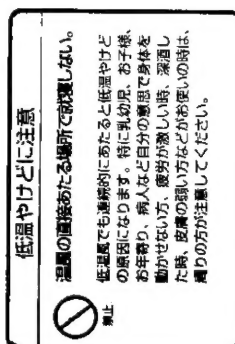 低温やけどに注意
温風の直接あたる場所で就寝しない。
低温風でも連続的にあたると低温やけど
の原因になります。特に乳幼児、お子様、
お年寄り、病人など自分の意思で身体を
動かせない方、疲労が激しい時、深酒し
た時、皮膚の弱い方などがお使いの時は、
周りの方が注意してください。
禁止